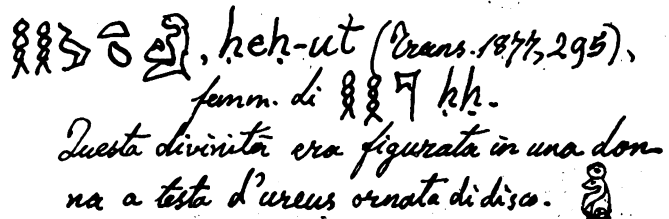 𓎛𓎛, ḥeḥ-ut (Trans. 1877, 295),
femm. di 𓎛𓎛𓊹 ḥḥ.
Questa divinità era figurata in una don-
na a testa d'ureus ornata di disco.